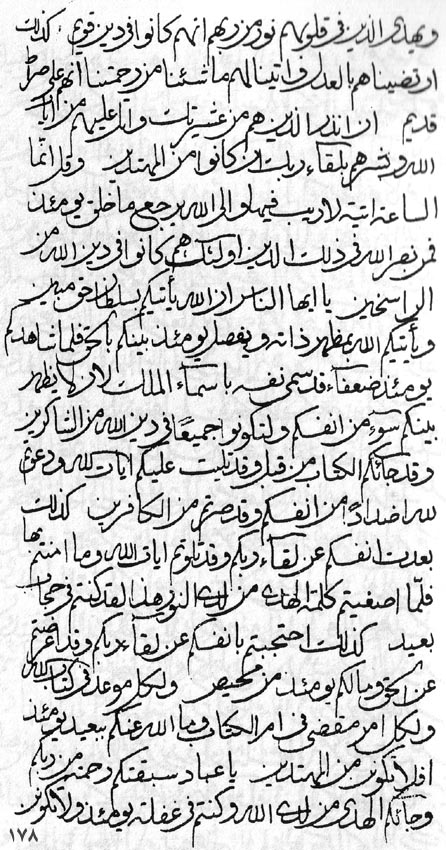 ويهدى الذين فى قلوبهم نور من ربهم انهم كانوا فى دين قويم كذلك
ارتضيناهم بالعدل واتيناهم ما شئنا من رحمتنا انهم على صراط
قديم ان انذر الذين هم من عشيرتك واتل عليهم من ايات
الله وبشرهم بلقاء ربك ان كانوا من المهتدين وقل انما
الساعة اتية لا ريب فيها والى الله يرجع ما خلق يومئذ
فمن نصر الله فى ذلك الدين اولئك هم كانوا فى دين الله من
الراسخين يا ايها الناس ان الله يأتيكم بسلطان حق مبين
ويأتيكم الله بمظهر ذاته ويفصل يومئذ بينكم بالحق فلما شاهدتم
يومئذ ضعفاء قد سمى نفسه باسماء الملك لان لا يظهر
بينكم سوء من انفسكم ولتكونوا جميعا فى دين الله من الشاكرين
وقد جائكم الكتاب من قبل وقد تليت عليكم ايات الله ودعوتم
لله اضدادا من انفسكم وقد صرتم من الكافرين كذلك
بعدت انفسكم عن لقاء ربكم وقد تلوتم ايات الله وما امنتم بها
فلما اصغيتم كلمة الهدى من لدى النور هذا لقد كنتم فى حجاب
بعيد كذلك احتجبتم بانفسكم عن لقاء ربكم وقد اعرضتم
عن الحق وما لكم يومئذ من محيص ولكل موعد فى كتاب الله
ولكل امر مقضى فى ام الكتاب وما الله عنكم ببعيد يومئذ
افلا تكونن من المهتدين يا عباد سبقتكم رحمة من ربكم
وجائكم الهدى من لدى الله وكنتم فى غفلة يومئذ ولا تكونن
١٧٨